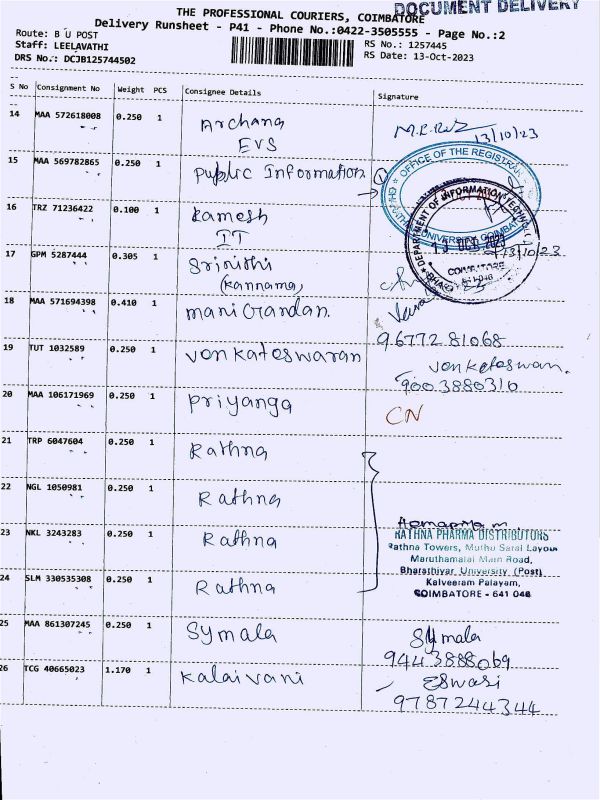 DOCUMENT DELIVERY
THE PROFESSIONAL COURIERS, COIMBATORE
Delivery Runsheet - P41 - Phone No.:0422-3505555 - Page No.:2
Route: B U POST
Staff: LEELAVATHI
DRS No.: DCJB125744502
RS No.: 1257445
RS Date: 13-Oct-2023
S No Consignment No Weight PCS Consignee Details Signature
14 MAA 572618008 0.250 1 Archana
EVS
13/10/23
15 MAA 569782865 0.250 1 Public Information
OFFICE OF THE REGISTRAR
UNIVERSITY COIMBATORE
DEPARTMENT OF INFORMATION
COIMBATORE
16 TRZ 71236422 0.100 1 Ramesh
IT
13/10/23
17 GPM 5287444 0.305 1 Srinithi
(Kannama)
18 MAA 571694398 0.410 1 Manigandan
9677281068
19 TUT 1032589 0.250 1 Venkateswaran
Venkateswan.
9003880310
20 MAA 106171969 0.250 1 Priyanga CN
21 TRP 6047604 0.250 1 Rathna
22 NGL 1050981 0.250 1 Rathna
23 NKL 3243283 0.250 1 Rathna
Hemaprita m
RATHNA PHARMA DISTRIBUTORS
Rathna Towers, Muthu Sarai Layout
Maruthamalai Main Road,
Bharathiyar, University (Post)
Kalveeram Palayam,
COIMBATORE - 641 046
24 SLM 330535308 0.250 1 Rathna
25 MAA 861307245 0.250 1 Symala
Symala
9443888069
26 TCG 40665023 1.170 1 Kalaivani
Eswari
9787244344